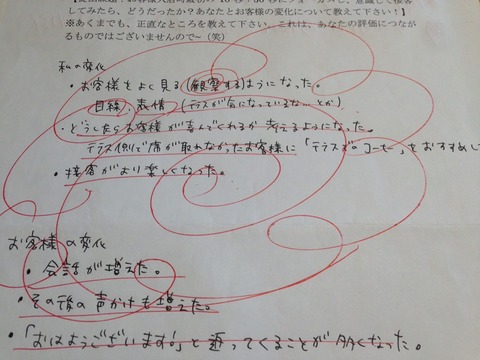 してみたら、どうだったか？あなたとお客様の変化について教えて下さい！】
※あくまでも、正直なところを教えて下さい。これは、あなたの評価につなが
るものではございませんので～（笑）
私の変化
・お客様をよく見る(観察する)ようになった。
目線、表情（テラスが気になっているな…とか）
・どうしたらお客様が喜んでくれるか考えるようになった。
テラス側で席が取れなかったお客様に「テラスでのコーヒー」をおすすめし
・接客がより楽しくなった。
お客様の変化
・会話が増えた。
・その後の声かけも増えた。
・「おはようございます!」と返ってくることが多くなった。